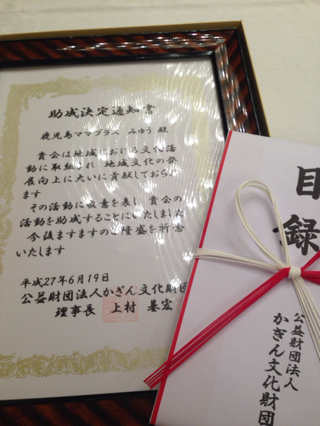 助成決定通知書
鹿児島ママブラス みゆう 殿
貴会は地域における文化活
動に取組まれ 地域文化の発
展向上に大いに貢献しておられ
ます
その活動に敬意を表し 貴会の
活動を助成することにいたしました
今後ますますのご隆盛を祈念
いたします
平成27年6月19日
公益財団法人かぎん文化財団
理事長 上村 基宏
目録
公益財団法人
かぎん文化財団